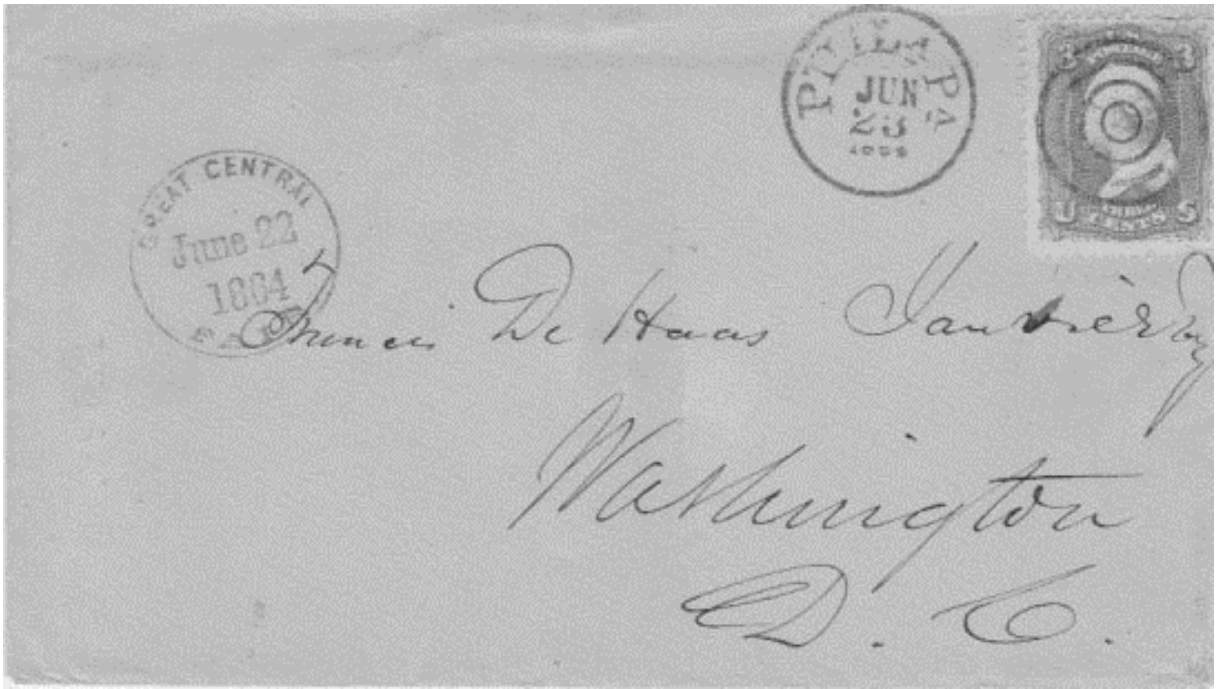 PHILA PA
JUN
23
3 3
U S
THREE
CENTS
GREAT CENTRAL
June 22
1864
FAIR
Francis De Haas Janvier Esq
Washington
D. C.